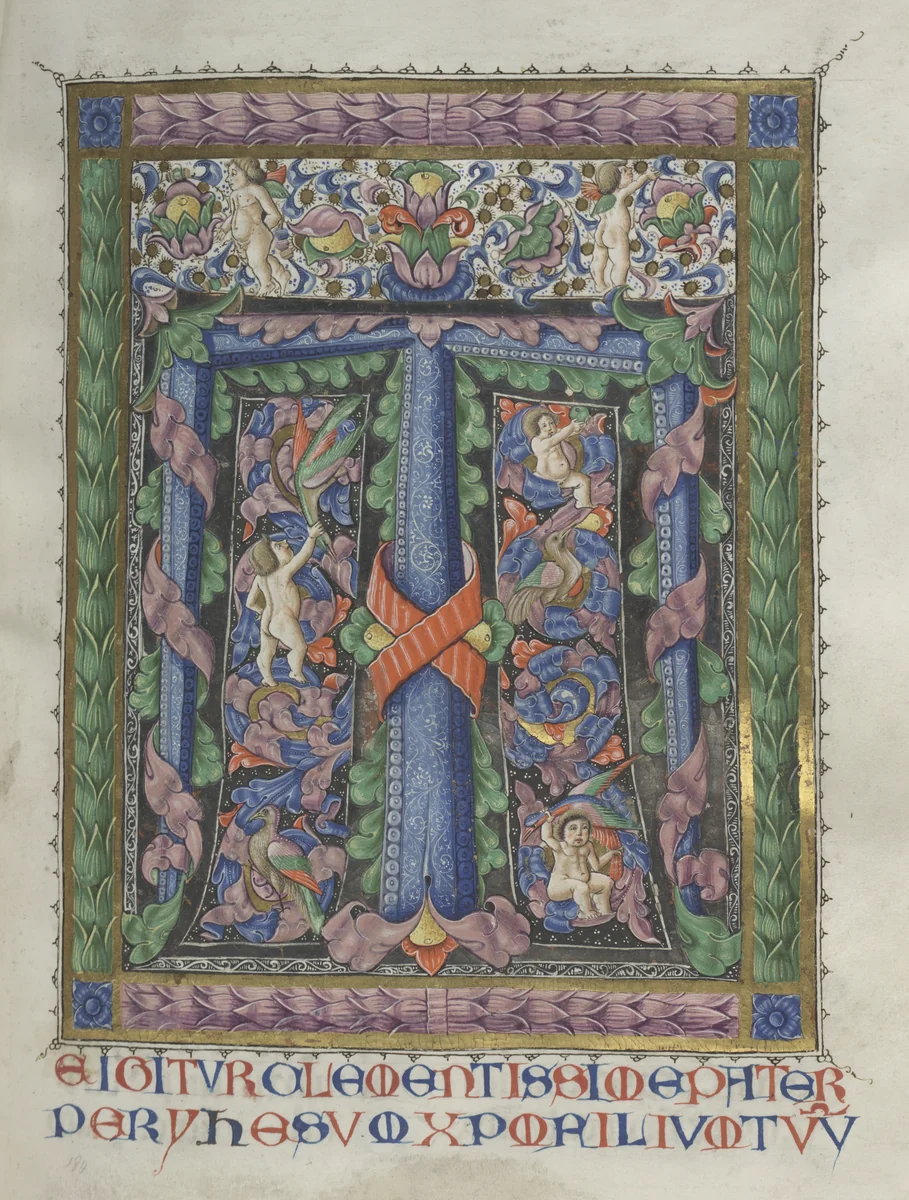 T
EIGITVRCLEMENTISSIMEPATER
PERYHESVMXPMFILIVMTVV̅
189